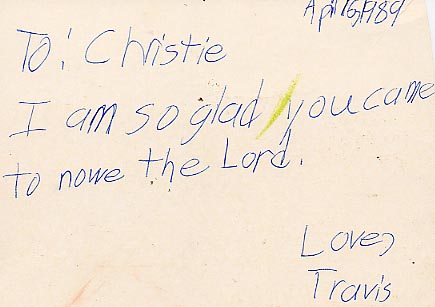 April 6, 1989
To: Christie
I am so glad you came
to nowe the Lord.
Love,
Travis